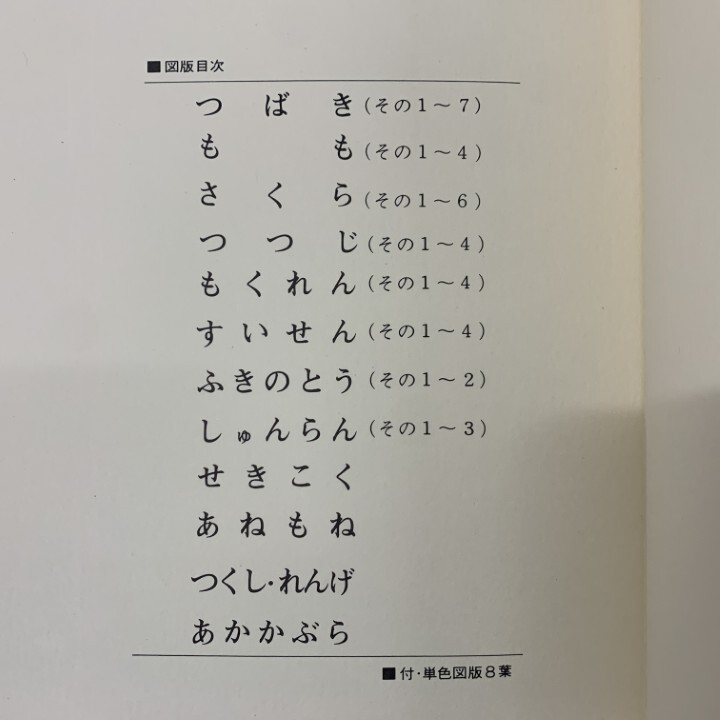 ■図版目次
つばき（その１～７）
もも（その１～４）
さくら（その１～６）
つつじ（その１～４）
もくれん（その１～４）
すいせん（その１～４）
ふきのとう（その１～２）
しゅんらん（その１～３）
せきこく
あねもね
つくし・れんげ
あかかぶら
■付・単色図版８葉